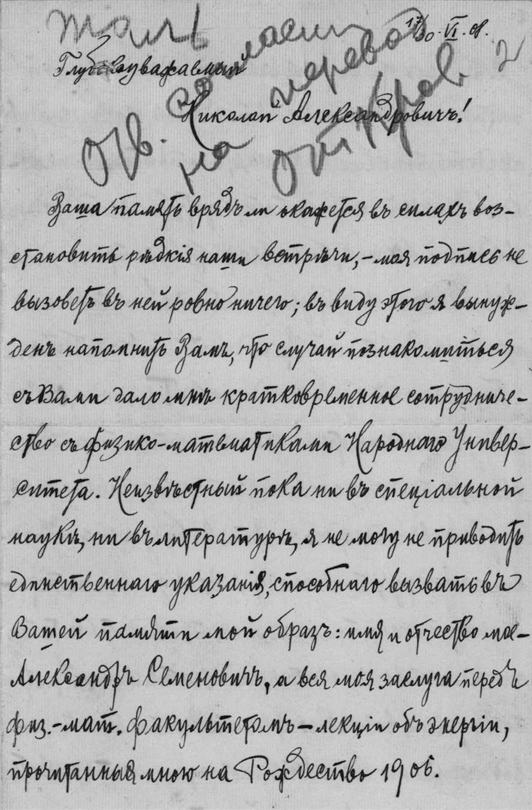 17/30. VI. 08.
Глубокоуважаемый
Николай Александровичъ!
Отв. на перевод
Ваша память врядъ ли окажется въ силахъ воз-
становить рѣдкія наши встрѣчи,-моя подпись не
вызоветъ въ ней ровно ничего; въ виду этого я вынуж-
денъ напомнить Вамъ, что случай познакомиться
съ Вами дало мнѣ кратковременное сотрудниче-
ство съ физико-математиками Народнаго Универ-
ситета. Неизвѣстный пока ни въ спеціальной
наукѣ, ни въ литературѣ, я не могу не приводить
единственнаго указанія, способнаго вызвать въ
Вашей памяти мой образъ: имя и отчество мое-
Александръ Семеновичъ, а вся моя заслуга передъ
физ.-мат. факультетомъ-лекціи объ энергіи,
прочитанныя мною на Рождество 1906.